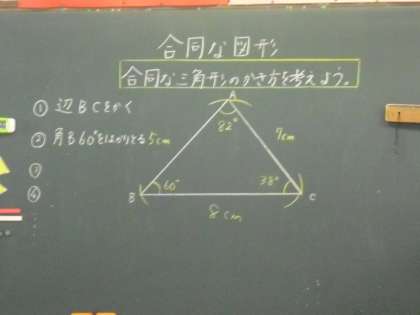 合同な図形
合同な三角形のかき方を考えよう。
① 辺BCをかく
② 角B60°をはかりとる
③
④
A
82°
5cm
7cm
60°
38°
B
C
8cm